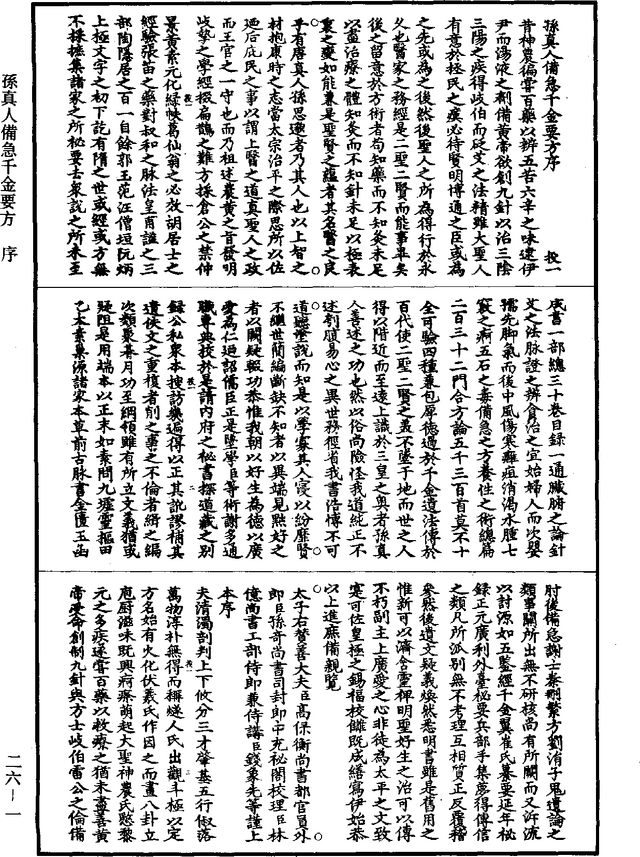 孫真人備急千金要方序
投一
昔神農徧嘗百藥以辨五苦六辛之味逮伊
尹而湯液之劑備黃帝欲創九針以治三陰
三陽之疾得岐伯而砭艾之法精雖大聖人
有意於拯民之瘼必待賢明博通之臣或為
之先或為之後然後聖人之所為得行於永
久也醫家之務經是二聖二賢而能事畢矣
後之留意於方術者苟知藥而不知灸未足
以盡治療之體知灸而不知針未足以極表
裏之變如能兼是聖賢之蘊者其名醫之良
乎有唐真人孫思邈者乃其人也以上智之
材抱康時之志當太宗治平之際思所以佐
迺后庇民之事以謂上醫之道真聖人之政
而王官之一守也而乃祖述農黃之旨發明
岐摯之學經掇扁鵲之難方採倉公之禁仲
景黃素元化綠帙葛仙翁之必效胡居士之
經驗張苗之藥對叔和之脉法皇甫謐之三
部陶隱居之百一自餘郭玉范汪僧垣阮炳
上極文字之初下訖有隋之世或經或方無
不採摭集諸家之所秘要去衆說之所未至
成書一部總三十卷目錄一通臟腑之論針
艾之法脉證之辨食治之宜始婦人而次嬰
孺先脚氣而後中風傷寒癰疽消渴水腫七
竅之痾五石之毒備急之方養性之術總篇
二百三十二門合方論五千三百首莫不十
全可驗四種兼包厚德過於千金遺法傳於
百代使二聖二賢之美不墜于地而世之人
得以階近而至遠上識於三皇之奧者孫真
人善述之功也然以俗尚險怪我道純正不
述刳腹易心之異世務徑省我書浩博不可
道聽塗說而知是以學寡其人寖以紛靡賢
不繼世簡編斷缺不知者以異端見黜好之
者以闕疑輟功恭惟我朝以好生為德以廣
愛為仁迺詔儒臣正是墜學臣等術謝多通
職專典校於是請內府之秘書探道藏之別
錄公私衆本搜訪幾遍得以正其訛謬補其
遺佚文之重複者削之事之不倫者緝之編
次類聚朞月功至綱領雖有所立文義猶或
疑阻是用端本以正末如素問九墟靈樞甲
乙太素巢源諸家本草前古脉書金匱玉函
肘後備急謝士泰刪繁方劉涓子鬼遺論之
類事關所出無不研核尚有所闕而又泝流
以討源如五鑒經千金翼崔氏纂要延年秘
錄正元廣利外臺秘要兵部手集夢得傳信
之類凡所派別無不考理互相質正反覆稽
參然後遺文疑義煥然悉明書雖是舊用之
惟新可以濟含靈裨明聖好生之治可以傳
不朽副主上廣愛之心非徒為太平之文致
寔可佐皇極之錫福校讎既成繕寫伊始恭
以上進庶備親覽
太子右贊善大夫臣高保衡尚書都官員外
郎臣孫奇尚書司封郎中充秘閣校理臣林
億尚書工部侍郎兼侍講臣錢象先等謹上
本序
夫清濁剖判上下攸分三才肇基五行俶落
萬物淳朴無得而稱燧人氏出觀斗極以定
方名始有火化伏羲氏作因之而畫八卦立
庖廚滋味既興痾瘵萌起大聖神農氏愍黎
元之多疾遂嘗百藥以救療之猶未盡善黃
帝受命創制九針與方士岐伯雷公之倫備
孫真人備急千金要方 序
二六-一